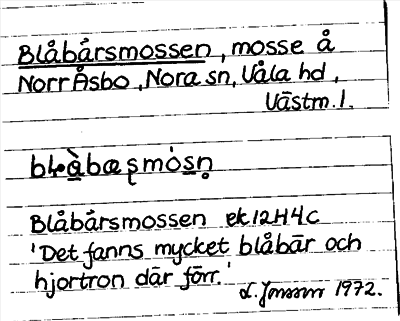 Blåbårsmossen, mosse å
Norr Åsbo, Nora sn, Våla hd,
Västm. l.
Blåbärsmossen ek.12H4c
'Det fanns mycket blåbär och
hjortron där förr.'
1972.